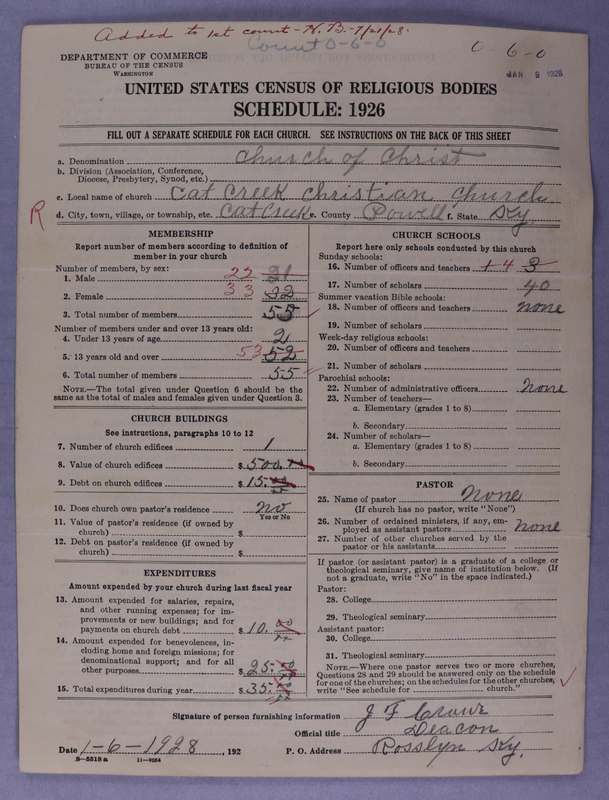 Added to 1st count - H.B. - 7/21/28.
Count 0-6-0
0-6-0
DEPARTMENT OF COMMERCE
BUREAU OF THE CENSUS
WASHINGTON
JAN 9 1928
UNITED STATES CENSUS OF RELIGIOUS BODIES
SCHEDULE: 1926
FILL OUT A SEPARATE SCHEDULE FOR EACH CHURCH. SEE INSTRUCTIONS ON THE BACK OF THIS SHEET
a. Denomination Church of Christ
b. Division (Association, Conference,
Diocese, Presbytery, Synod, etc.)
c. Local name of church Cat Creek Christian Church
R
d. City, town, village, or township, etc. Cat Creek e. County Powell f. State Ky.
MEMBERSHIP
Report number of members according to definition of
member in your church
Number of members, by sex:
1. Male 22 21
2. Female 33 32
3. Total number of members 55
Number of members under and over 13 years old:
4. Under 13 years of age 2
5. 13 years old and over 53 52
6. Total number of members 55
NOTE.—The total given under Question 6 should be the
same as the total of males and females given under Question 3.
CHURCH BUILDINGS
See instructions, paragraphs 10 to 12
7. Number of church edifices 1
8. Value of church edifices $500.
9. Debt on church edifices $15.
10. Does church own pastor's residence no
Yes or No
11. Value of pastor's residence (if owned by
church) $
12. Debt on pastor's residence (if owned by
church) $
EXPENDITURES
Amount expended by your church during last fiscal year
13. Amount expended for salaries, repairs,
and other running expenses; for im-
provements or new buildings; and for
payments on church debt $10.
14. Amount expended for benevolences, in-
cluding home and foreign missions; for
denominational support; and for all
other purposes $25.
15. Total expenditures during year $35.
CHURCH SCHOOLS
Report here only schools conducted by this church
Sunday schools:
16. Number of officers and teachers 1 4 3
17. Number of scholars 40
Summer vacation Bible schools:
18. Number of officers and teachers none
19. Number of scholars
Week-day religious schools:
20. Number of officers and teachers
21. Number of scholars
Parochial schools:
22. Number of administrative officers none
23. Number of teachers—
a. Elementary (grades 1 to 8)
b. Secondary
24. Number of scholars—
a. Elementary (grades 1 to 8)
b. Secondary
PASTOR
25. Name of pastor None
(If church has no pastor, write "None")
26. Number of ordained ministers, if any, em-
ployed as assistant pastors none
27. Number of other churches served by the
pastor or his assistants
If pastor (or assistant pastor) is a graduate of a college or
theological seminary, give name of institution below. (If
not a graduate, write "No" in the space indicated.)
Pastor:
28. College
29. Theological seminary
Assistant pastor:
30. College
31. Theological seminary
NOTE.—Where one pastor serves two or more churches,
Questions 28 and 29 should be answered only on the schedule
for one of the churches; on the schedules for the other churches,
write "See schedule for church."
Signature of person furnishing information J F Crowe
Official title Deacon
Date 1-6-1928, 192 P. O. Address Rosslyn Ky.
8-5518 a 11-9054